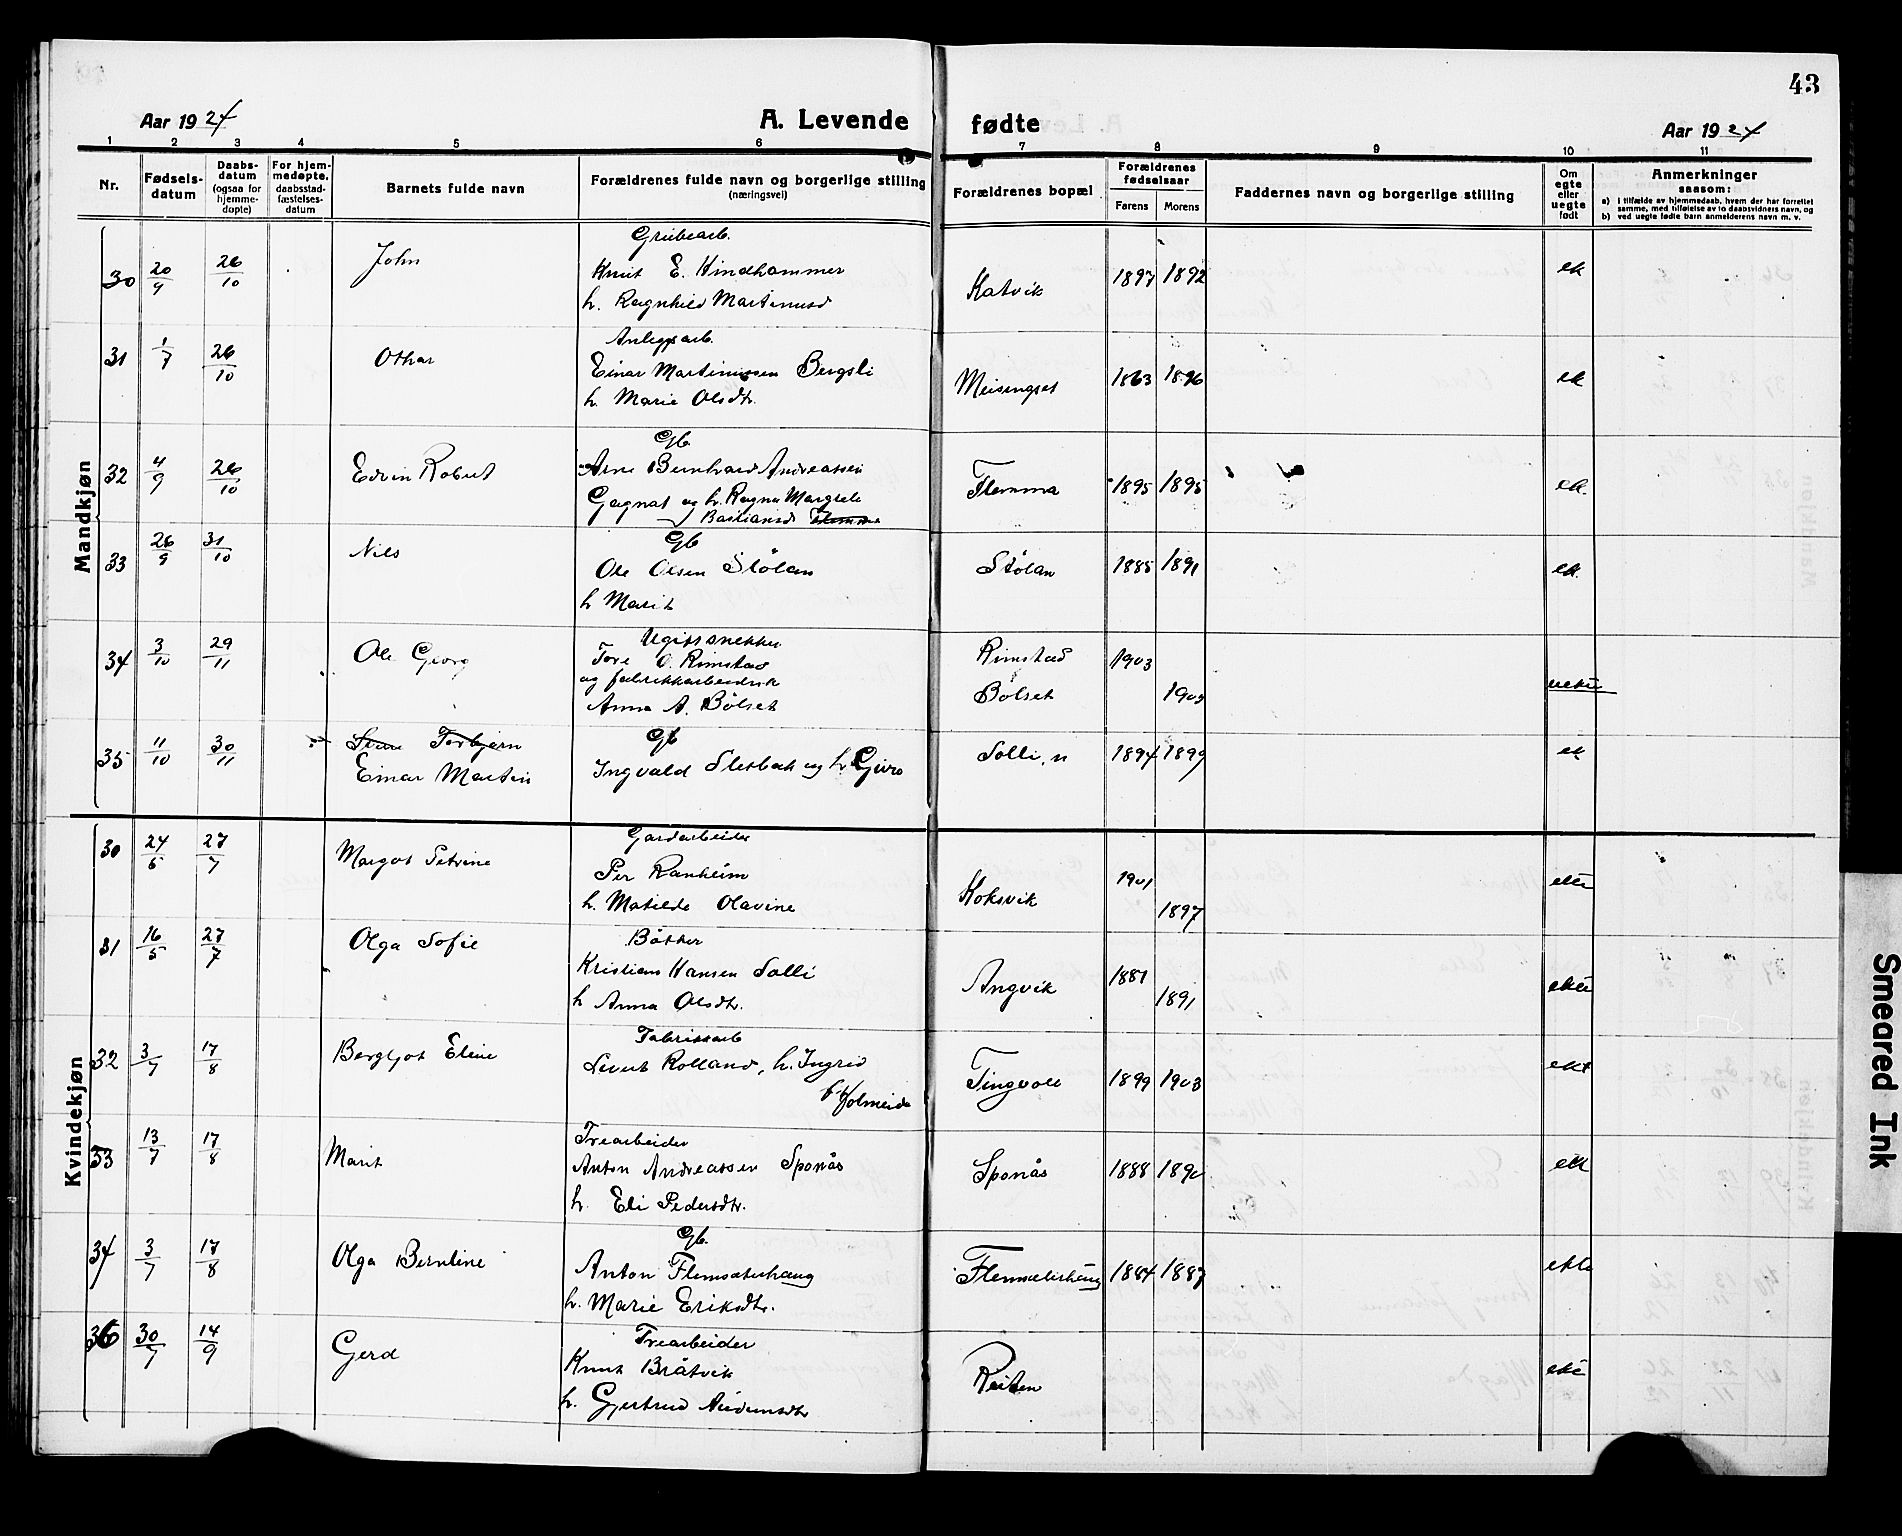 43
Aar 1924
A. Levende fødte
Aar 1924
1 2 3 4 5 6 7 8 9 10 11
Nr.
Fødsels-
datum
Daabs-
datum
(ogsaa for
hjemme-
døpte)
For hjem-
medøpte.
daabsstad-
fæstelses-
datum
Barnets fulde navn
Forældrenes fulde navn og borgerlige stilling
(næringsvei)
Forældrenes bopæl
Forældrenes
fødselsaar
Farens Morens
Faddernes navn og borgerlige stilling
Om
egte
eller
uegte
født
Anmerkninger
saasom:
a) i tilfælde av hjemmedaab, hvem der har forrettet
samme, med tilføielse av to daabsvidners navn, og
b) ved uegte fødte barn anmelderens navn m. v.
Mandkjøn
Grubearb.
30 20/9 26/10 John Knut E. Kindhammer Katvik 1897 1892 ek
h. Ragnhild Martinusd
Anleggsarb.
31 1/7 26/10 Othar Einar Martinussen Bergsli Meisingset 1863 1896 ek
h. Marie Olsdtr.
Gb.
32 4/9 26/10 Edvin Robert Arne Bernhard Andreassen Flemma 1895 1895 ek.
Gagnat og h. Ragna Margrete
Bastiansd Flemma
Gb
33 26/9 31/10 Nils Ole Olsen Stølan Stølan 1885 1891 ek.
h Marit
Ugift snekker
34 3/10 29/11 Ole Georg Tore O. Rimstad Rimstad 1903
og fabrikkarbeiderske
Anna A. Bølset Bølset 190
35 11/10 30/11 Torbjørn Gb
Einar Martin Ingvald Sletbak og h. Guro Solli, n 1894 1899 ek
Kvindekjøn
Gardarbeider
30 24/5 27/7 Margot Petrine Per Ranheim Koksvik 1901 ekte
h. Matilde Olavine 1897
Bøkker
31 16/5 27/7 Olga Sofie Kristian Hansen Solli Angvik 1881 ekte
h Anna Olsdtr. 1891
Fabrikkarb
32 3/7 17/8 Bergljot Eline Sivert Rolland, h. Ingrid Tingvoll 1899 1903 ekt
f. Holmeide
Trearbeider
33 13/7 17/8 Marit Anton Andreassen Sponås Sponås 1888 189 ek
h. Eli Pedersdtr.
Gb.
34 3/7 17/8 Olga Berntine Anton Flemsæterhaug Flemsæterhaug 1884 1887 ekte
h. Marie Eriksdtr.
Trearbeider
36 30/7 14/9 Gerd Knut Bråtvik Reiten ekte
h. Gjertrud
Smeared Ink